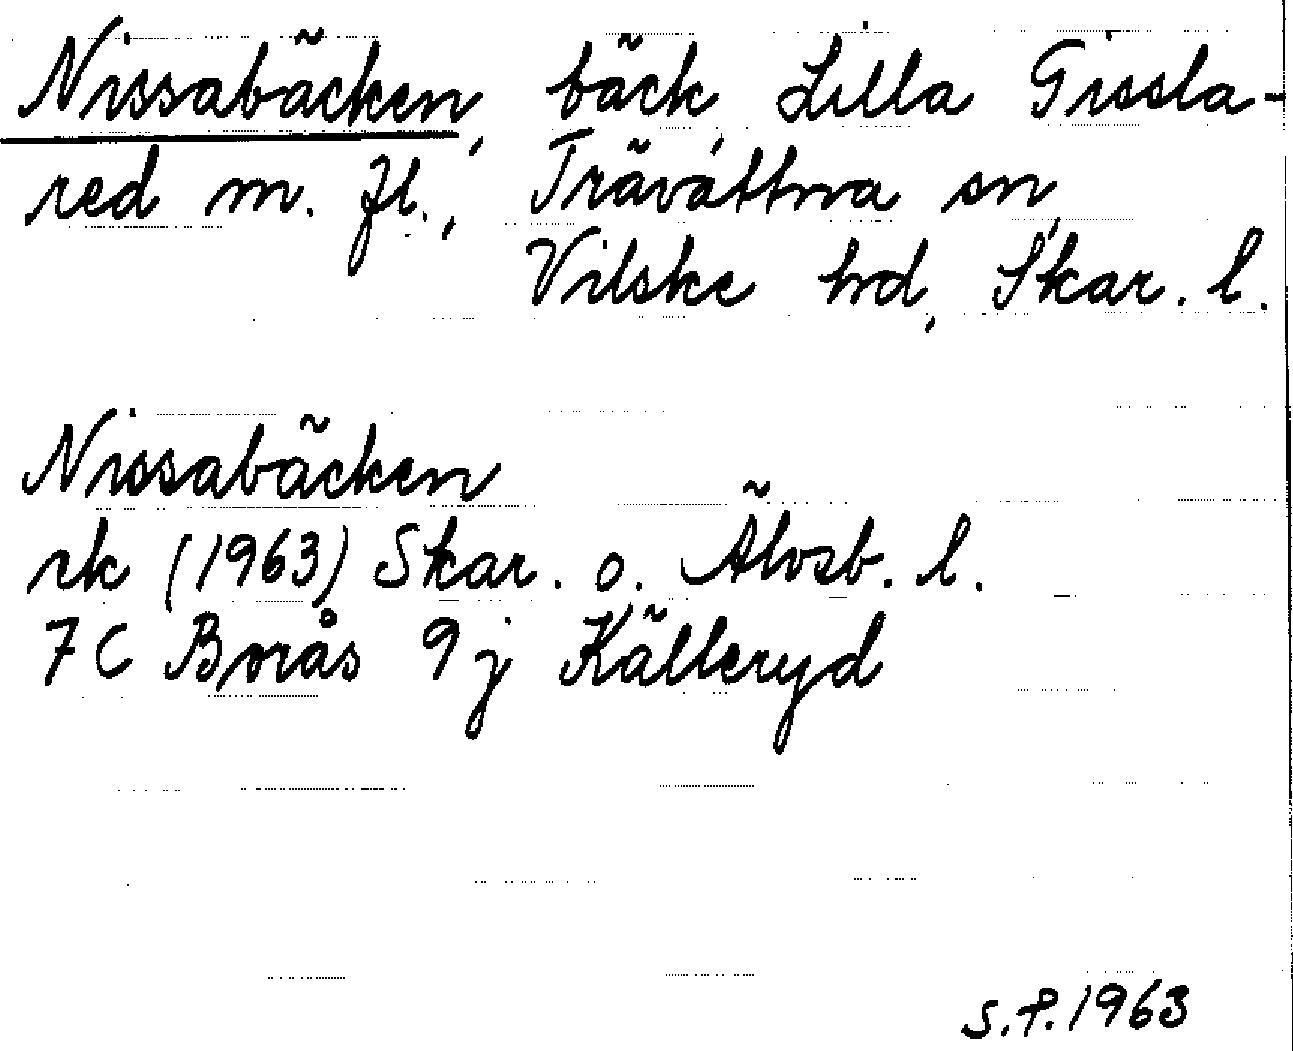 Nissabäcken, bäck, Lilla Gissla-
red m. fl., Trävattna sn,
Vilske hd, Skar. l.
Nissabäcken
rk (1963) Skar. o. Älvsb. l.
7C Borås 9j Källeryd
S.P. 1963